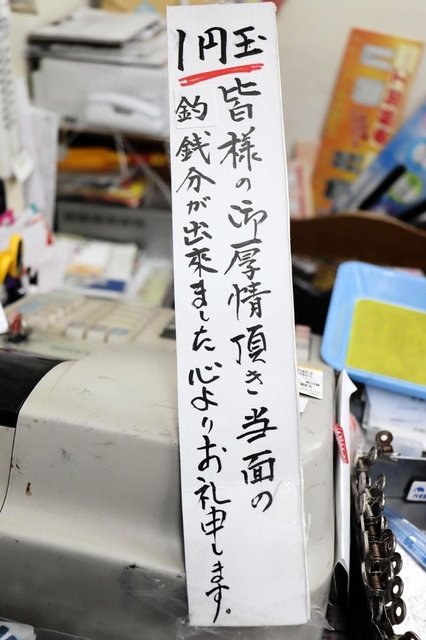 1円玉
皆様の御厚情頂き当面の
釣銭分が出来ました心よりお礼申します。